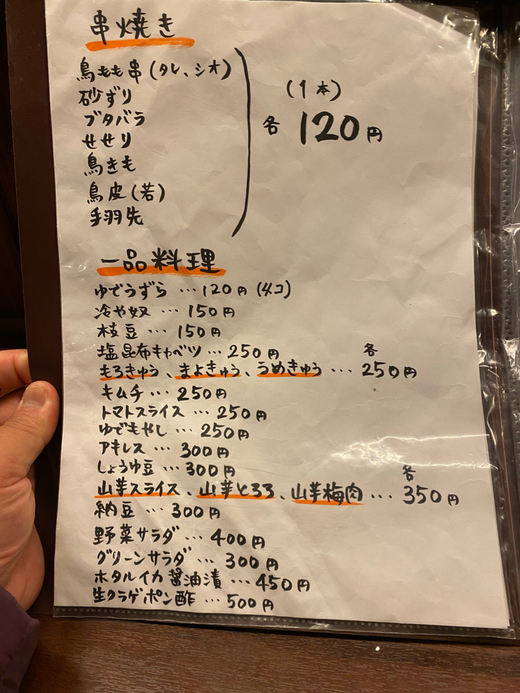 串焼き
鳥もも串(タレ、シオ)
砂ずり
ブタバラ
せせり
鳥きも
鳥皮(若)
手羽先
(1本)
各 120円
一品料理
ゆでうずら …120円(4コ)
冷や奴 …150円
枝豆 …150円
塩昆布キャベツ …250円
もろきゅう、まよきゅう、うめきゅう …各250円
キムチ …250円
トマトスライス …250円
ゆでもやし …250円
アキレス …300円
しょうゆ豆 …300円
山芋スライス、山芋とろろ、山芋梅肉 …各350円
納豆 …300円
野菜サラダ …400円
グリーンサラダ …300円
ホタルイカ醤油漬 …450円
生クラゲポン酢 …500円